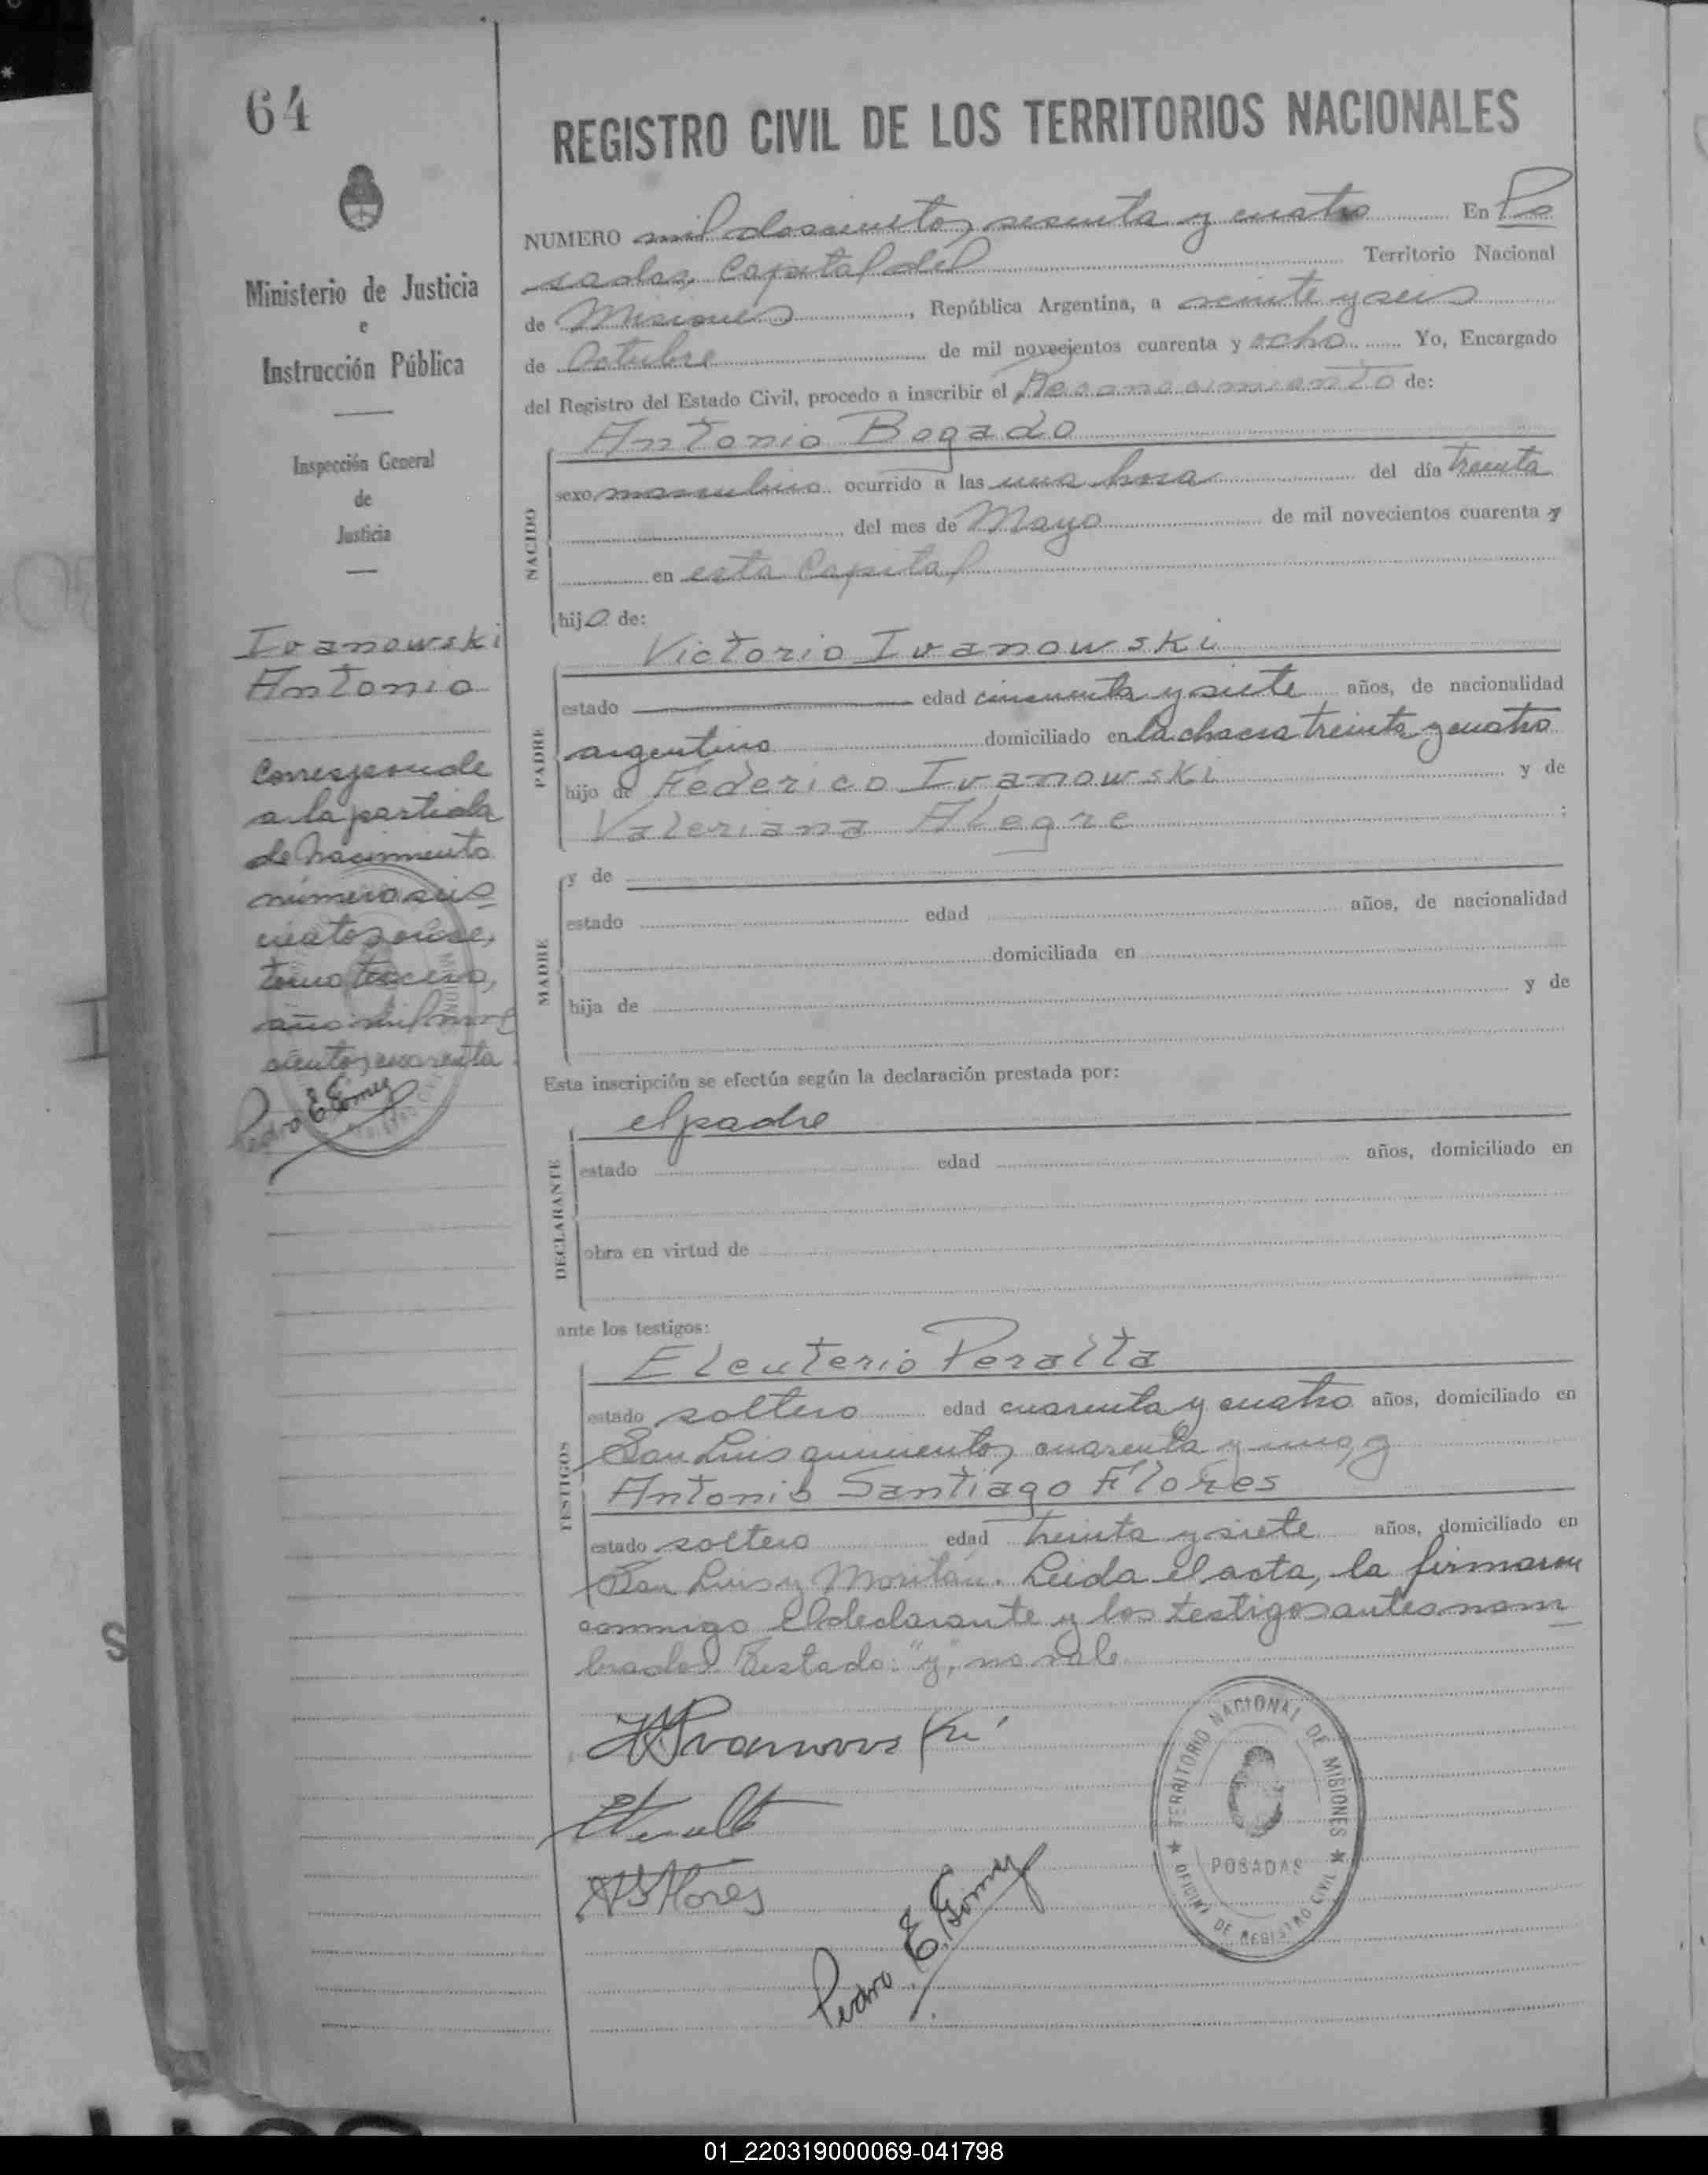 64
REGISTRO CIVIL DE LOS TERRITORIOS NACIONALES
NUMERO mil doscientos sesenta y cuatro En Po
sadas, Capital del Territorio Nacional
de Misiones, República Argentina, a veinte y seis
de Octubre de mil novecientos cuarenta y ocho Yo, Encargado
del Registro del Estado Civil, procedo a inscribir el Reconocimiento de:
Antonio Bogado
NACIDO
sexo masculino ocurrido a las una hora del día treinta
del mes de Mayo de mil novecientos cuarenta y
en esta Capital
hijo de:
Victorio Ivanowski
PADRE
estado edad cincuenta y siete años, de nacionalidad
argentino domiciliado en la chacra treinta y cuatro
hijo de Federico Ivanowski y de
Valeriana Alegre ;
MADRE
y de
estado edad años, de nacionalidad
domiciliada en
hija de y de
Esta inscripción se efectúa según la declaración prestada por:
el padre
DECLARANTE
estado edad años, domiciliado en
obra en virtud de
ante los testigos:
TESTIGOS
Eleuterio Peralta
estado soltero edad cuarenta y cuatro años, domiciliado en
San Luis quinientos cuarenta y uno, y
Antonio Santiago Flores
estado soltero edad treinta y siete años, domiciliado en
San Luis y Moritán. Leida el acta, la firmaron
conmigo el declarante y los testigos antes nom
brados. Testado: "y", no vale
VIvanowski
EPeralta
ASFlores
Pedro E. Gómez
TERRITORIO NACIONAL DE MISIONES
POSADAS
OFICINA DE REGISTRO CIVIL
Ministerio de Justicia
e
Instrucción Pública
Inspección General
de
Justicia
Ivanowski
Antonio
Corresponde
a la partida
de nacimiento
número seis
cientos once,
tomo tercero,
año mil nove
cientos cuarenta
Pedro E Gómez
01_220319000069-041798